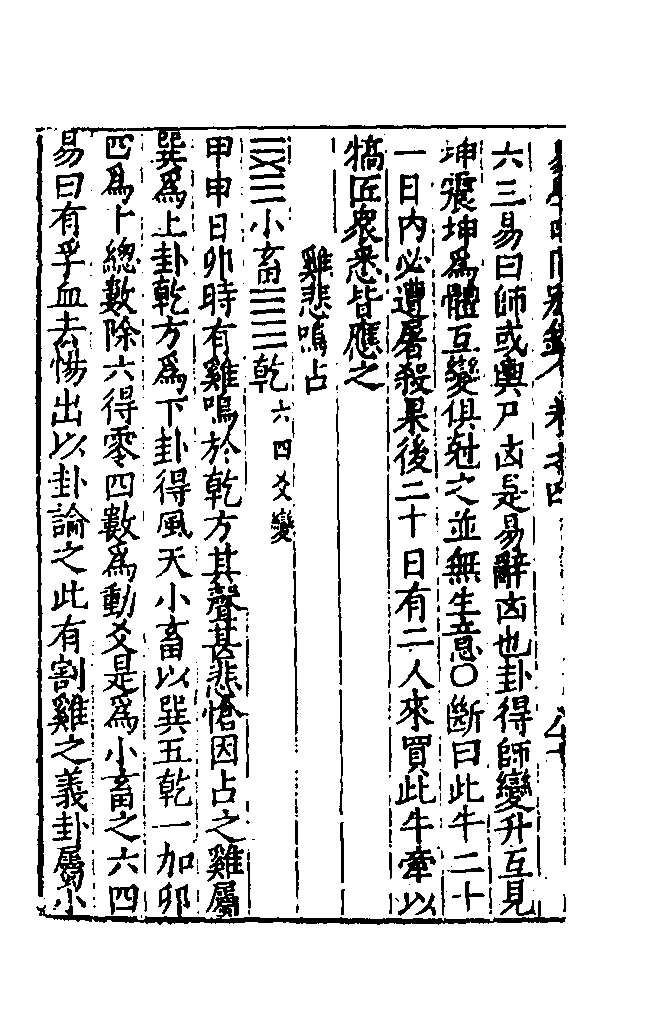 六三易曰師或輿尸凶是易辭凶也卦得師變升互見
坤震坤為體互變俱尅之並無生意〇斷曰此牛二十
一日內必遭屠殺果後二十日有二人來買此牛牽以
犒匠衆悉皆應之
雞悲鳴占
小畜乾六四爻變
甲申日卯時有雞鳴於乾方其聲甚悲愴因占之雞屬
巽為上卦乾方為下卦得風天小畜以巽五乾一加卯
四為卜總數除六得零四數為動爻是為小畜之六四
易曰有孚血去惕出以卦論之此有割雞之義卦屬小